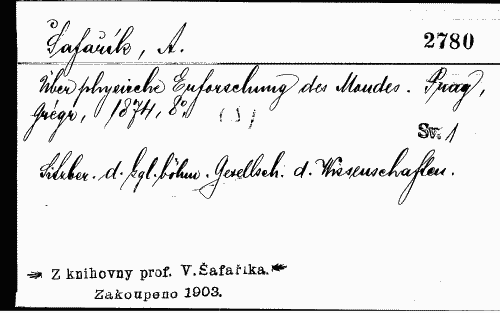 Šafařík, A.
2780
Über physische Erforschung des Mondes. Prag,
Grégr, 1874, 8°,
Sv. 1
Sitzber. d. kgl. böhm. Gesellsch. d. Wissenschaften.
Z knihovny prof. V. Šafaříka.
Zakoupeno 1903.